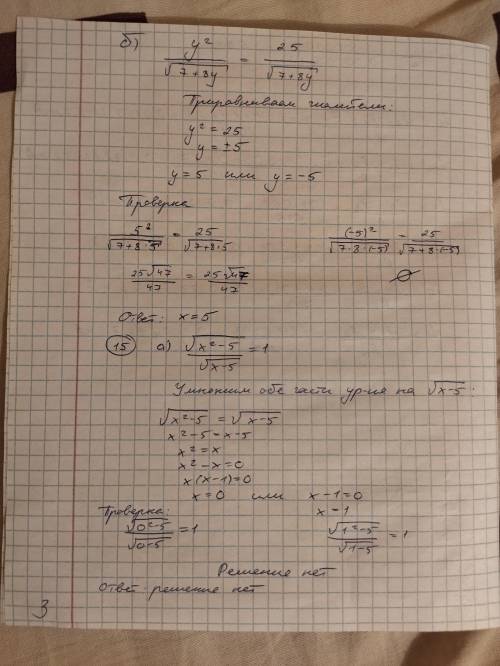 б) y²/√(7+8y) = 25/√(7+8y)
Приравниваем числители:
y² = 25
y = ±5
y = 5 или y = -5
Проверка
5²/√(7+8·5) = 25/√(7+8·5) (-5)²/√(7·8·(-5)) = 25/√(7+8·(-5))
25√47/47 = 25√47/47 ∅
Ответ: x = 5
15 а) √(x²-5)/√(x-5) = 1
Умножим обе части ур-ия на √(x-5).
√(x²-5) = √(x-5)
x²-5 = x-5
x² = x
x² - x = 0
x(x-1) = 0
x = 0 или x-1 = 0
x = 1
Проверка:
√(0²-5)/√(0-5) = 1 √(1²-5)/√(1-5) = 1
Решение нет
Ответ: решение нет
3